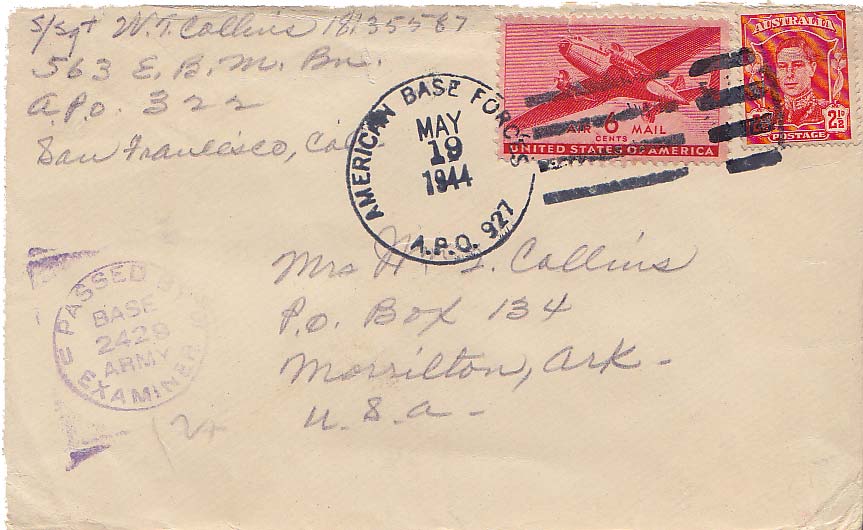 S/Sgt W.T. Collins
563 E.B.M. Bn.
A.P.O. 322
San Francisco, Cal.
AMERICAN BASE FORCES
MAY
19
1944
A.P.O. 927
AIR 6 MAIL
CENTS
UNITED STATES OF AMERICA
AUSTRALIA
2½d
POSTAGE
Mrs W. T. Collins
P.O. Box 134
Morrilton, Ark-
U.S.A-
PASSED BY
BASE
2429
ARMY
EXAMINER